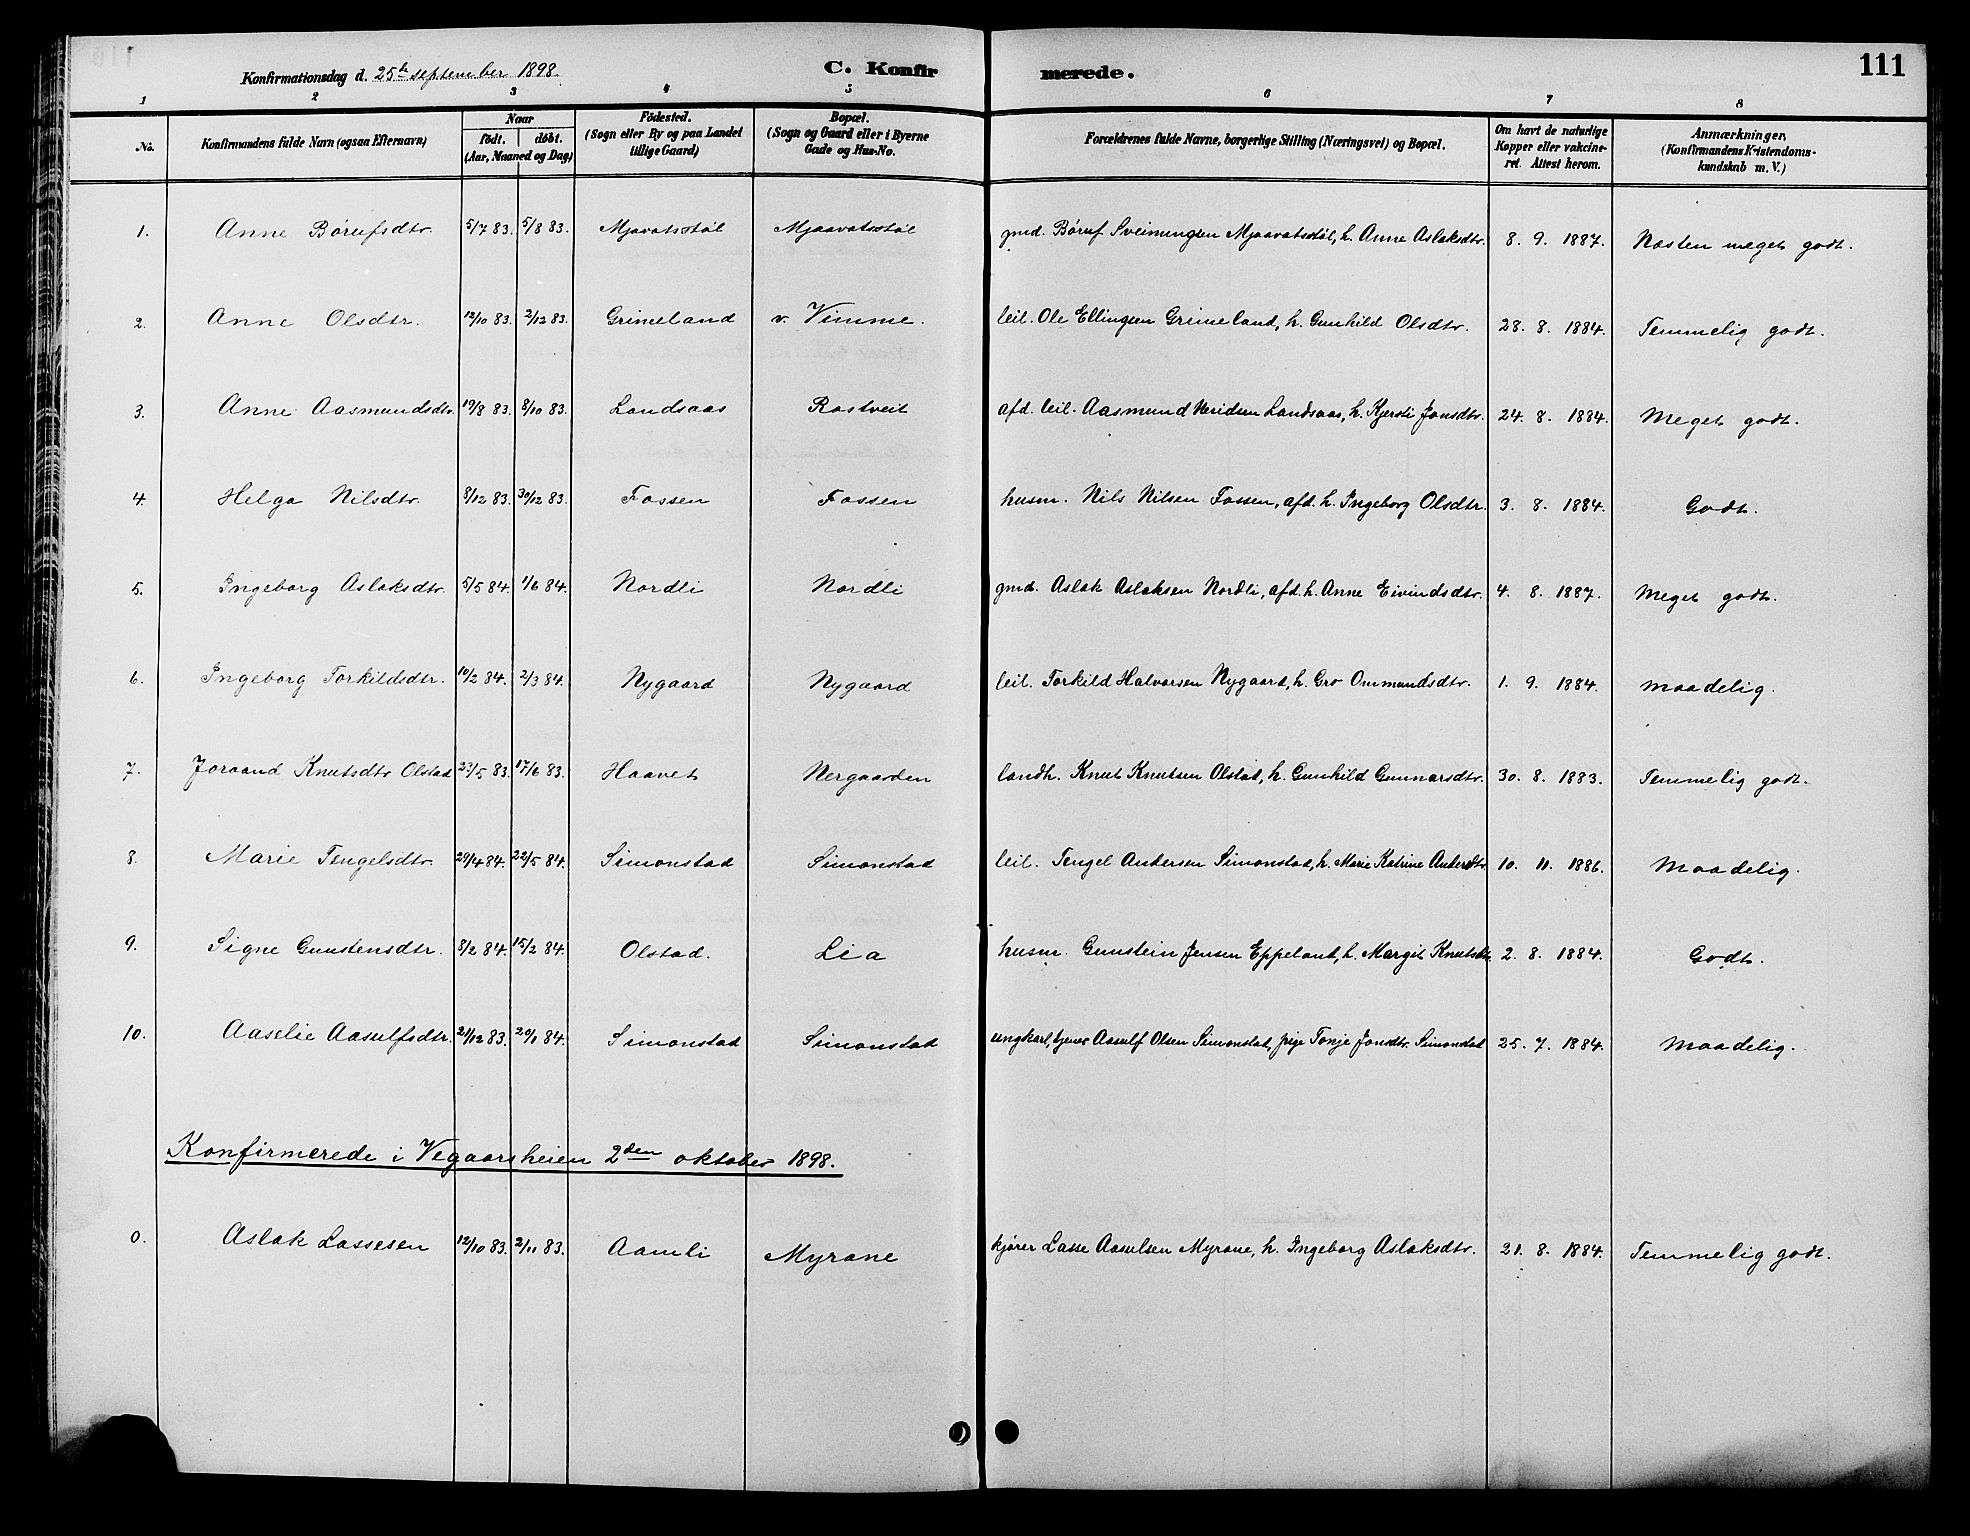 Konfirmationsdag d. 25de september 1898. C. Konfirmerede. 111
1 2 3 4 5 6 7 8
No. Konfirmandens fulde Navn (ogsaa Efternavn) Naar födt. döbt. (Aar, Maaned og Dag) Födested. (Sogn eller By og paa Landet tillige Gaard) Bopæl. (Sogn og Gaard eller i Byerne Gade og Hus-No. Forældrenes fulde Navne, borgerlige Stilling (Næringsvei) og Bopæl. Om havt de naturlige Kopper eller vakcineret. Attest herom. Anmærkninger. (Konfirmandens Kristendomskundskab m. V.)
1. Anne Börufsdtr. 5/7 83. 5/8 83. Mjavatsstöl Mjaavatsstöl gmd. Böruf Sveinungsen Mjaavatsstöl, h. Anne Aslaksdtr. 8. 9. 1887. Næsten meget godt.
2. Anne Olsdtr. 12/10 83. 2/12 83. Grimeland v. Vimme. leil. Ole Ellingsen Grimeland, h. Gunhild Olsdtr. 28. 8. 1884. Temmelig godt.
3. Anne Aasmundsdtr. 19/8 83. 8/10 83. Landsaas Rostveit afd. leil. Aasmund Neridsen Landsaas, h. Kjersti Jonsdtr. 24. 8. 1884. Meget godt.
4. Helga Nilsdtr. 8/12 83. 30/12 83. Fossen Fossen husm. Nils Nilsen Fossen, afd. h. Ingeborg Olsdtr. 3. 8. 1884. Godt.
5. Ingeborg Aslaksdtr. 5/5 84. 1/6 84. Nordli Nordli gmd. Aslak Aslaksen Nordli, afd. h. Anne Eivindsdtr. 4. 8. 1887. Meget godt.
6. Ingeborg Torkildsdtr. 10/2 84. 2/3 84. Nygaard Nygaard leil. Torkild Halvorsen Nygaard, h. Gro Ommundsdtr. 1. 9. 1884. Maadelig.
7. Joraand Knutsdtr Olstad 23/5 83. 17/6 83. Haavet Nergaarden landh. Knut Knutsen Olstad, h. Gunhild Gunnarsdtr. 30. 8. 1883. Temmelig godt.
8. Marie Tengelsdtr. 29/4 84. 22/5 84. Simonstad Simonstad leil. Tengel Andersen Simonstad, h. Marie Katrine Andersdtr. 10. 11. 1886. Maadelig.
9. Signe Gunstensdtr. 8/2 84. 15/2 84. Olstad. Lia husm. Gunstein Jensen Eppeland, h. Margit Knutsdtr. 2. 8. 1884. Godt.
10. Aaselie Aasulfsdtr. 21/12 83. 20/1 84. Simonstad Simonstad ungkarl, tjener Aasulf Olsen Simonstad, pige Tonje Jonsdtr. Simonstad 25. 7. 1884. Maadelig.
Konfirmerede i Vegaarsheien 2den oktober 1898.
0. Aslak Lassesen 12/10 83. 2/11 83. Aamli Myrane kjører Lasse Aasulsen Myrane, h. Ingeborg Aslaksdtr. 21. 8. 1884. Temmelig godt.